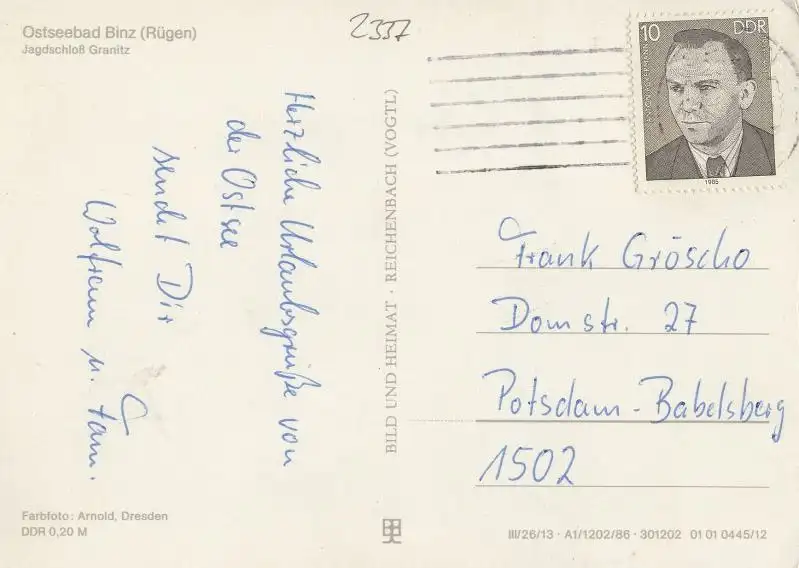 Ostseebad Binz (Rügen)
Jagdschloß Granitz
2337
10 DDR
1985
Herzliche Urlaubsgrüße von
der Ostsee
sendet Dir
Wolfram u. Fam.
BILD UND HEIMAT · REICHENBACH (VOGTL)
Frank Gröscho
Domstr. 27
Potsdam-Babelsberg
1502
Farbfoto: Arnold, Dresden
DDR 0,20 M
III/26/13 · A1/1202/86 · 301202 01 01 0445/12